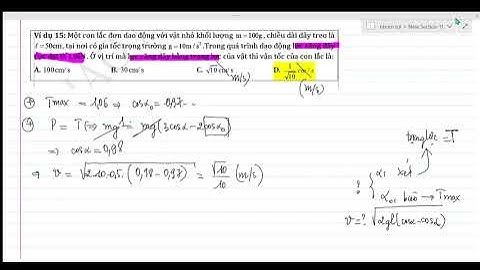 Ví dụ 15: Một con lắc đơn dao động với vật nhỏ khối lượng m = 100g, chiều dài dây treo là
ℓ = 50cm, tại nơi có gia tốc trọng trường g = 10m/s². Trong quá trình dao động lực căng dây
cực đại là 1,06N. Ở vị trí mà lực căng dây bằng trọng lực của vật thì vận tốc của con lắc là:
A. 100cm/s B. 30cm/s C. √10 cm/s D. 1/√10 cm/s
m/s) (m/s)
Tmax = 1,06 ⇒ cosα₀ = 0,97
P = T ⇔ mg = mg(3cosα - 2cosα₀)
⇒ cosα = 0,98
⇒ v = √2·10·0,5·(0,98 - 0,97) = √10/10 (m/s)
trọng lực = T
? α:
α₀: → Tmax
v = ? √2gl(cosα - cosα₀)